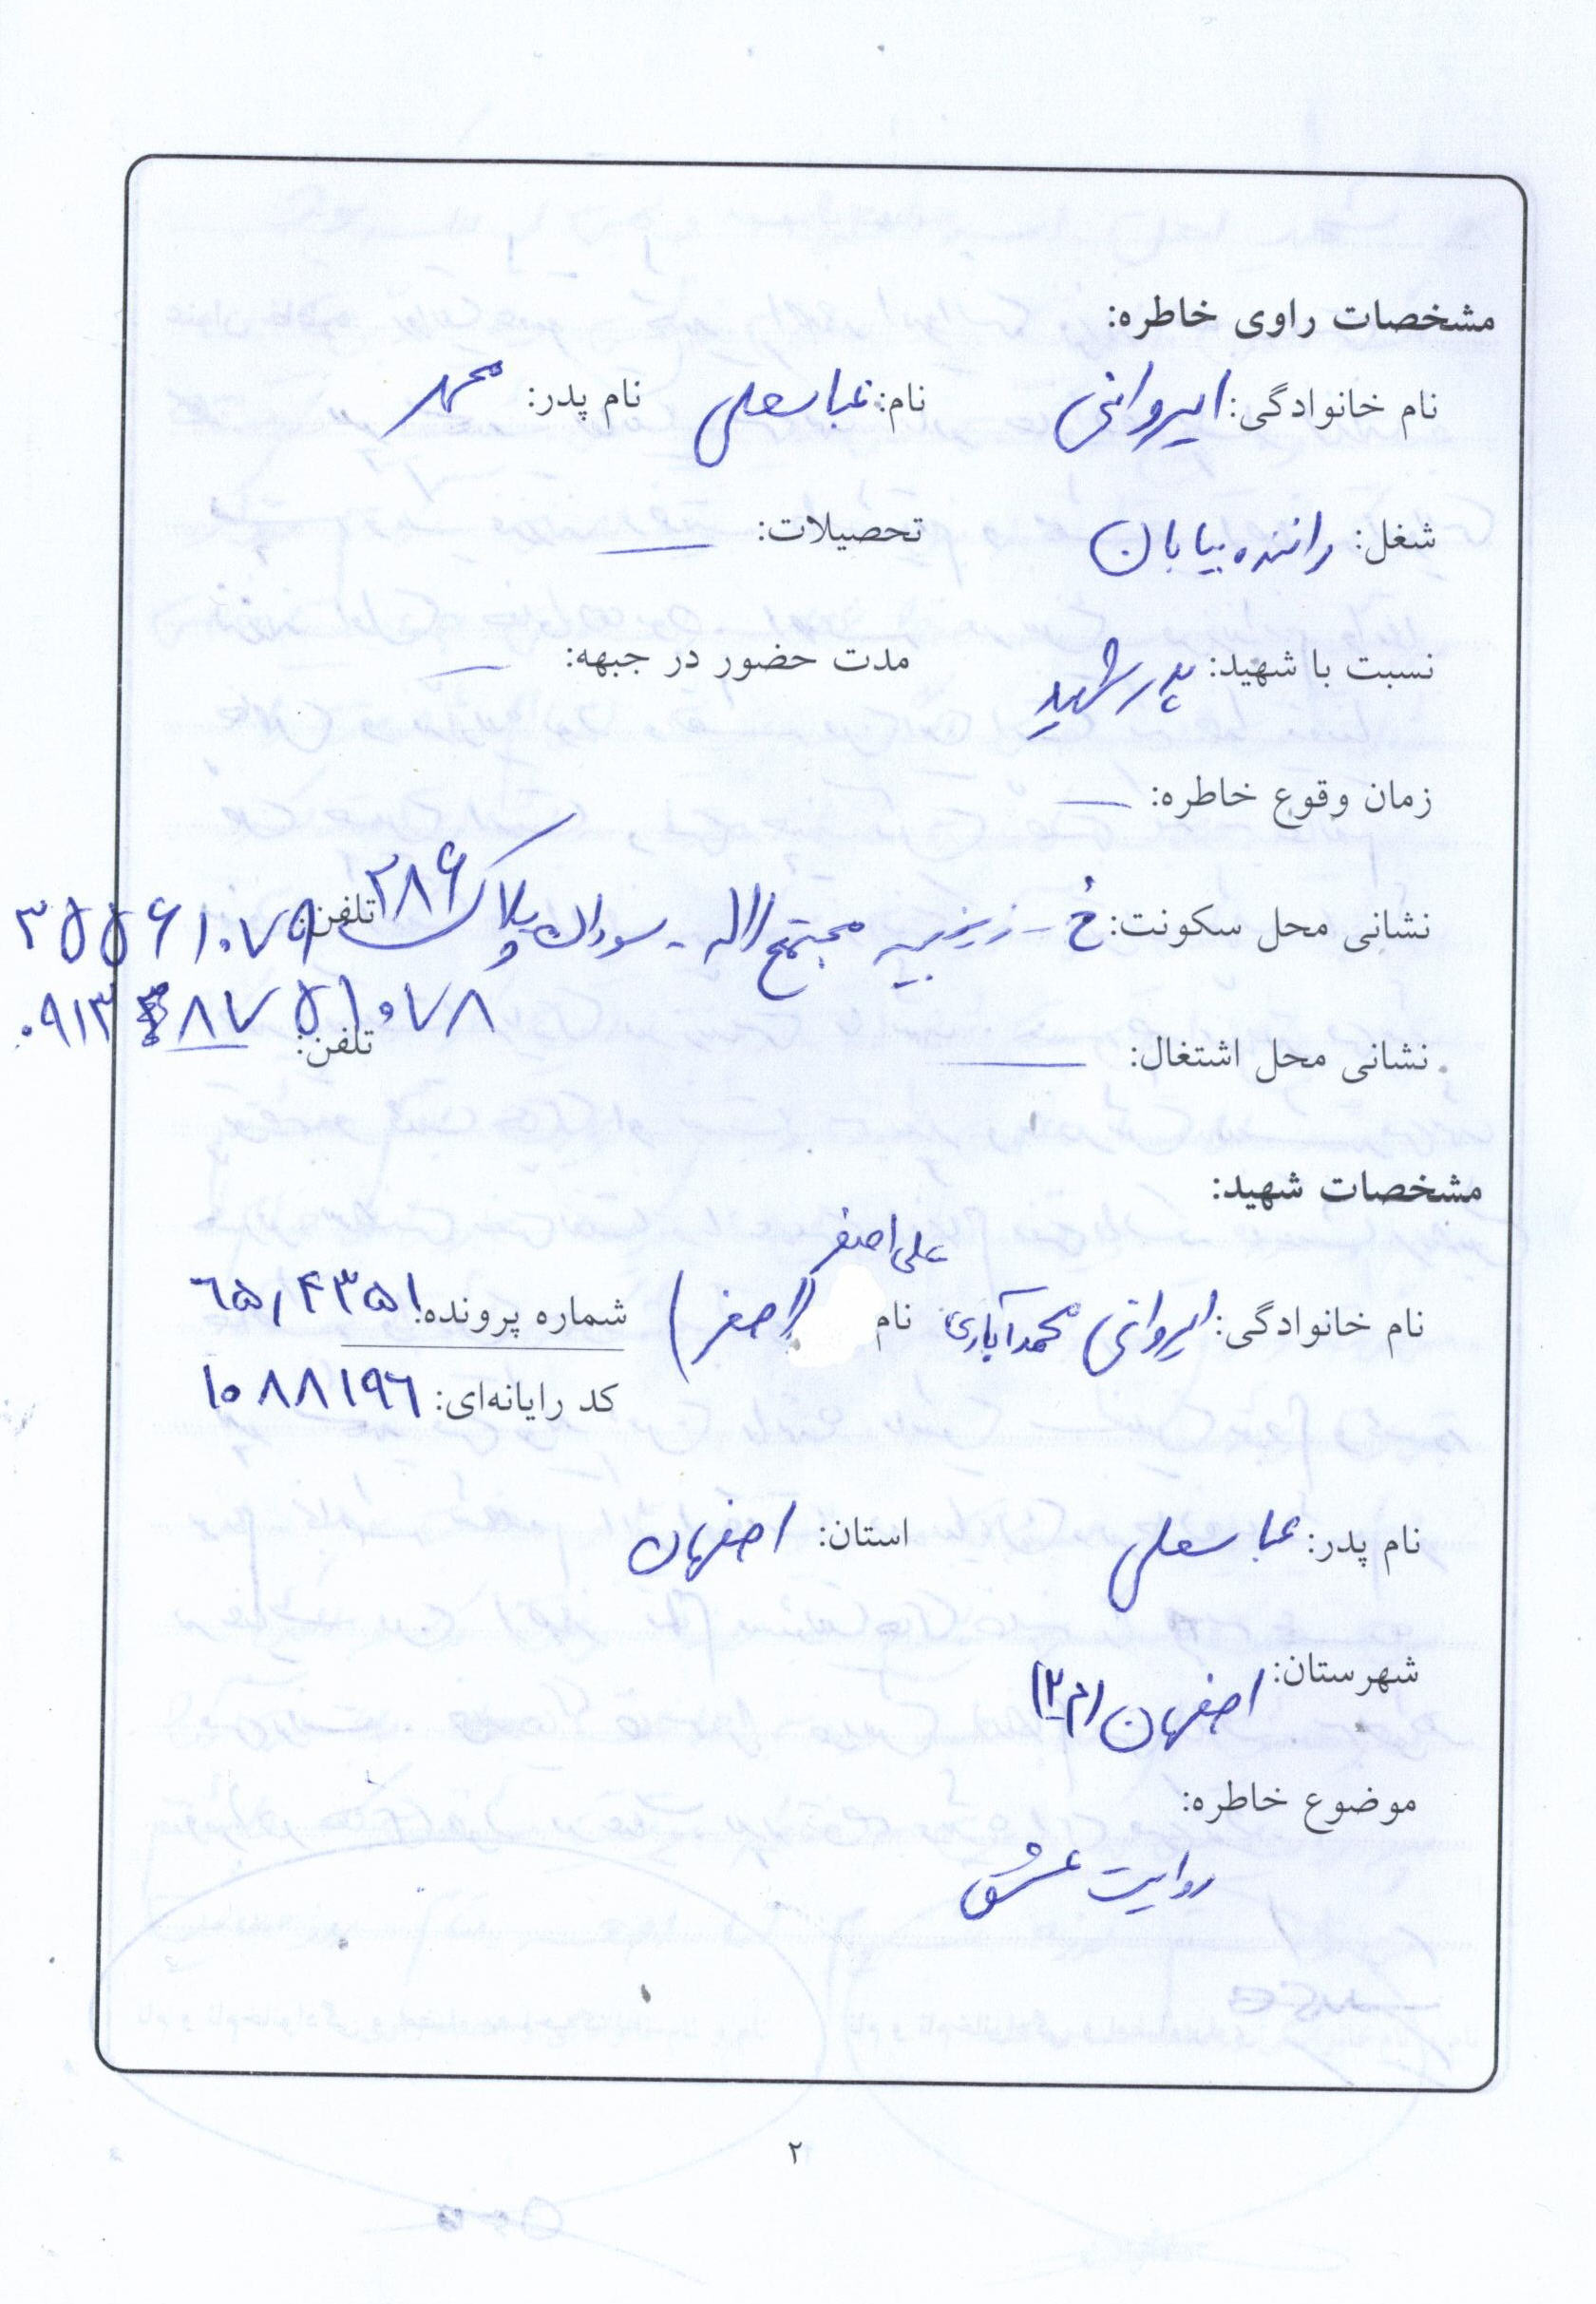 مشخصات راوی خاطره:
نام خانوادگی: ایروانی نام: عباسعلی نام پدر: محمد
شغل: راننده بیابان تحصیلات: ــ
نسبت با شهید: پدر شهید مدت حضور در جبهه: ــ
زمان وقوع خاطره: ــ
نشانی محل سکونت: خ - زینبیه مجتمع لاله - پلاک ۲۸۶ تلفن: ۳۵۵۶۱۰۷۹
۰۹۱۳ ۸۷۵۱۰۷۸
نشانی محل اشتغال: ــ تلفن:
مشخصات شهید:
علی اصغر
نام خانوادگی: ایروانی محمدآبادی نام (اصغر) شماره پرونده: ۶۵/۴۳۵۱
کد رایانه‌ای: ۱۰۸۸۱۹۶
نام پدر: عباسعلی استان: اصفهان
شهرستان: اصفهان (م۲)
موضوع خاطره:
روایت عشق
۲